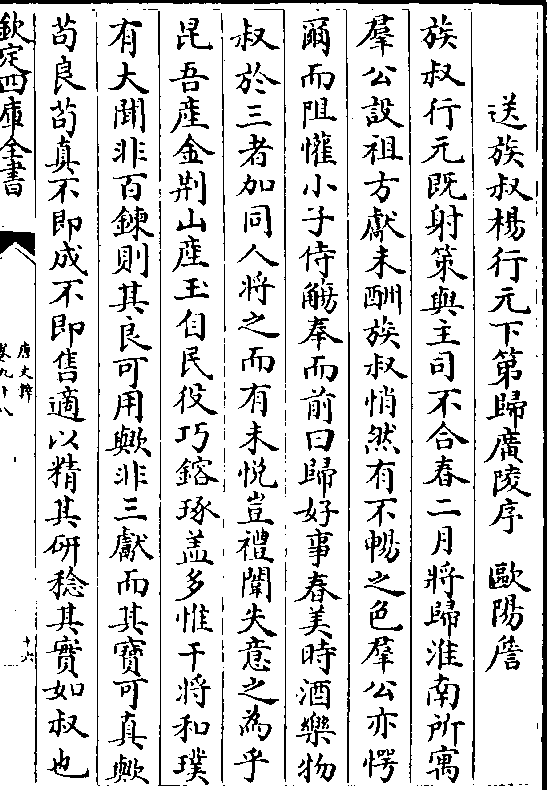 送族叔楊行元下第歸廣陵序　歐陽詹
族叔行元既射策與主司不合春二月將歸淮南所寓
羣公設祖方獻未酬族叔悄然有不暢之色羣公亦愕
爾而阻懽小子侍觴奉而前曰歸好事春美時酒樂物
叔於三者加同人將之而有未悅豈禮闈失意之為乎
昆吾產金荆山產玉自民役巧鎔琢盖多惟干將和璞
有大聞非百鍊則其良可用歟非三獻而其寶可真歟
苟良苟真不即成不即售適以精其研稔其實如叔也
欽定四庫全書
唐文粹
卷九十八
十六